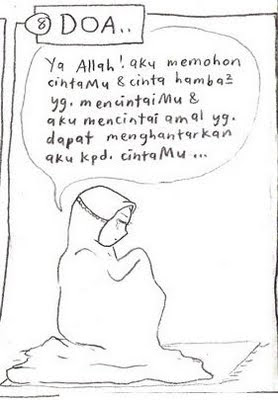 8 DOA..
Ya Allah! aku memohon
cintaMu & cinta hamba²
yg. mencintaiMu &
aku mencintai amal yg.
dapat menghantarkan
aku kpd. cintaMu ...